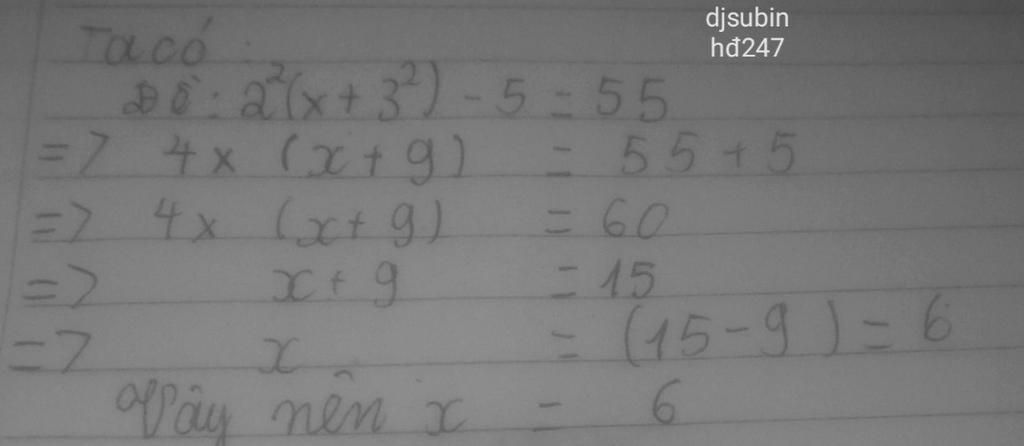 djsubin
hđ247
Ta có :
Đề: 2²(x + 3²) - 5 = 55
=> 4 x (x + 9) = 55 + 5
=> 4 x (x + 9) = 60
=> x + 9 = 15
=> x = (15 - 9) = 6
Vậy nên x = 6